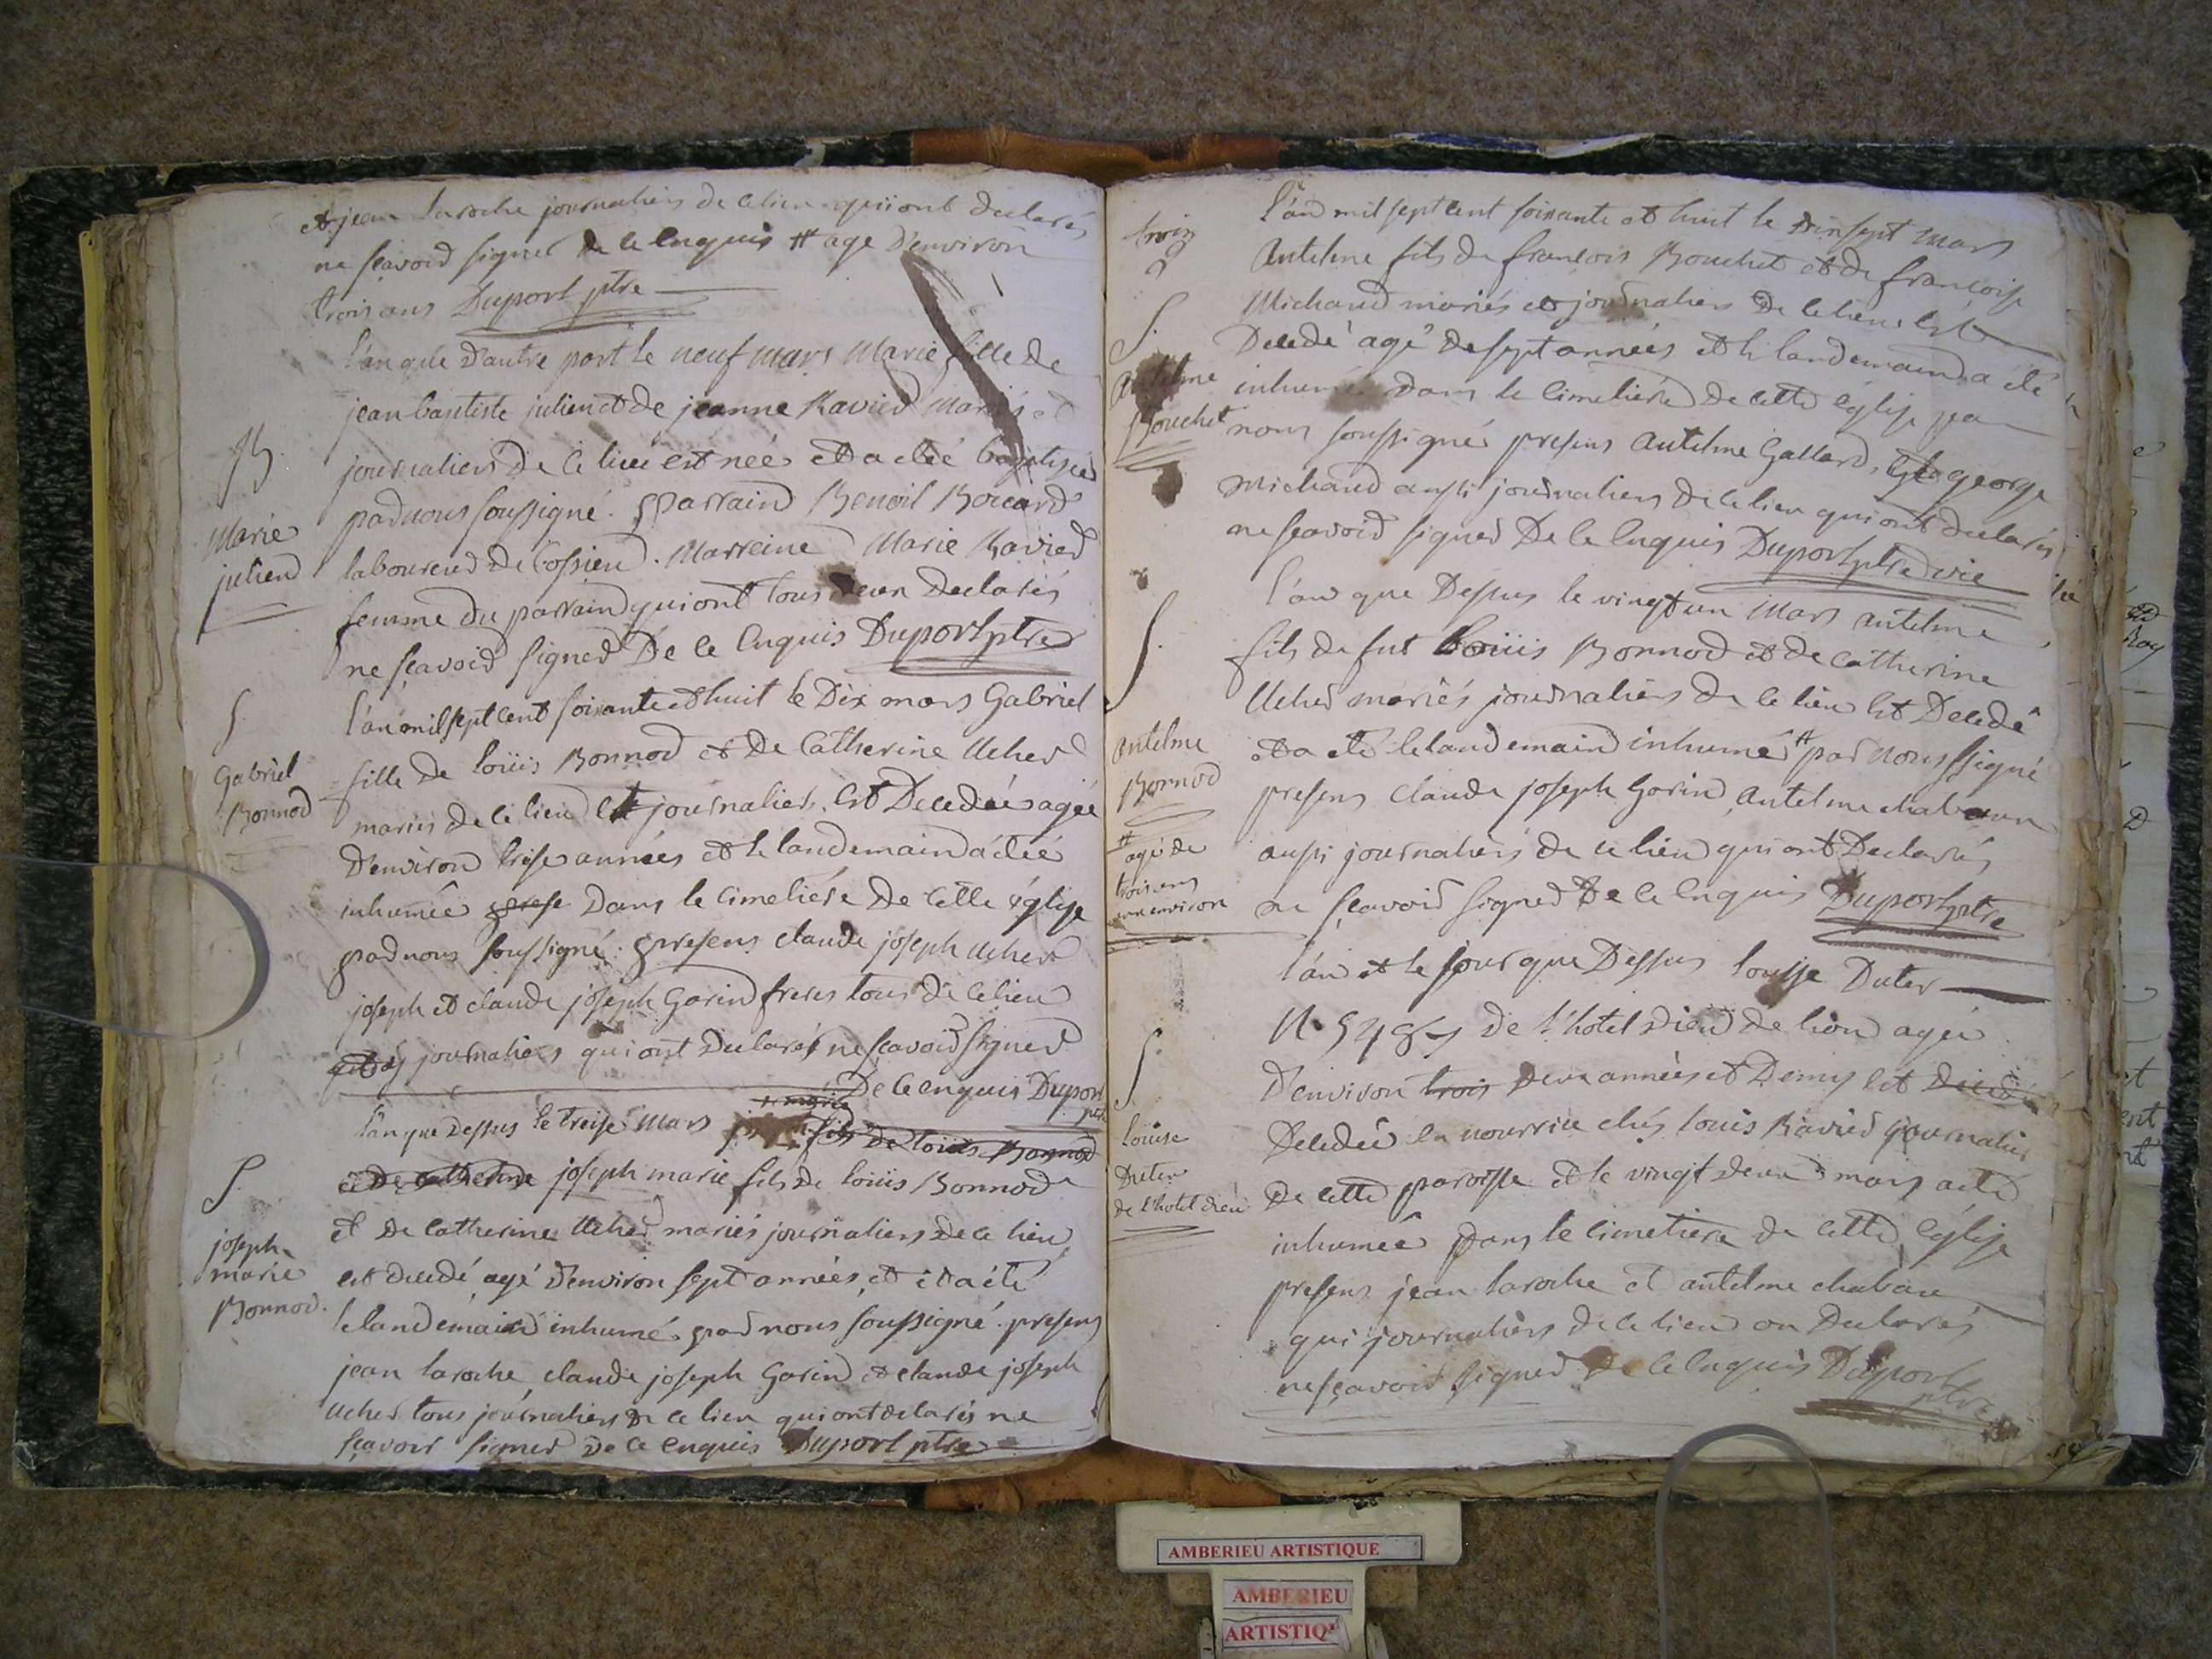 et jean laroche journaliers de ce lieu qui ont declarés
ne sçavoir signer de ce enquis # age d'environ
trois ans Duport ptre
l'an que d'autre part le neuf mars Marie fille de
jean baptiste julien et de jeanne Ravier mariés et
journaliers de ce lieu est née et a etée baptisée
par nous soussigné. parrain Benoit Boccard
laboureur de Cossieu. Marreine Marie Ravier
femme du parrain qui ont tous deux declarés
ne sçavoir signer De ce enquis Duport ptre
B
Marie
julien
l'an mil sept cent soixante et huit le Dix mars Gabriel
fille de loüis Bonnod et De Catherine Ucher
mariés de ce lieu et journaliers. est Decedée agée
d'environ treise années et le landemain a étée
inhumée prese Dans le cimetiére De cette église
par nous soussigné. presens claude joseph Ucher
joseph et claude joseph Gorin freres tous de ce lieu
journaliers qui ont declarés ne sçavoir signer
De ce enquis Duport
ptre
S.
Gabriel
Bonnod
l'an que Dessus le treise Mars fils de loüis Bonnod
et De Catherine joseph marie fils de loüis Bonnod
et De Catherine Ucher mariés journaliers de ce lieu
est decedé agé d'environ sept années, et et a été
le landemain inhumé par nous soussigné. presens
jean laroche, claude joseph Gorin et claude joseph
Ucher tous journaliers de ce lieu qui ont delarés ne
sçavoir signer de ce enquis Duport ptre
S.
joseph
marie
Bonnod.
l'an mil sept cent soixante et huit le dix sept mars
Antelme fils de françois Bouchet et de françoise
Michaud mariés et journaliers de ce lieu est
Decedé agé de sept années et le landemain a été
inhumé dans le cimetiére de cette église par
nous soussigné presens antelme Gallard, george
Michaud aussi journaliers de ce lieu qui ont declarés
ne sçavoir signer De ce enquis Duport ptre vic
S.
Antelme
Bouchet
l'an que Dessus le vingt un Mars antelme
fils de fut loüis Bonnod et de Catherine
Ucher mariés journaliers de ce lieu est Decedé
et a été le landemain inhumé # par nous ssigné
presens claude joseph Gorin antelme
aussi journaliers de ce lieu qui ont Declarés
ne sçavoir signer De ce enquis Duport ptre
S.
antelme
Bonnod
# agé de
trois ans
environ
l'an et le jour que Dessus louise Duter
de l'hotel dieu de lion agée
d'environ trois deux années et Demy est decedée
Decedée en nourrice chés louis Ravier journalier
De cette paroisse et le vingt deux mars a eté
inhumée Dans le cimetiere de cette église
presens jean laroche et antelme chabou
qui journaliers de ce lieu on Declarés
ne sçavoir signer de ce enquis Duport
ptre
S.
loüise
Duter
de l'hotel dieu
AMBERIEU ARTISTIQUE
AMBERIEU
ARTISTIQ